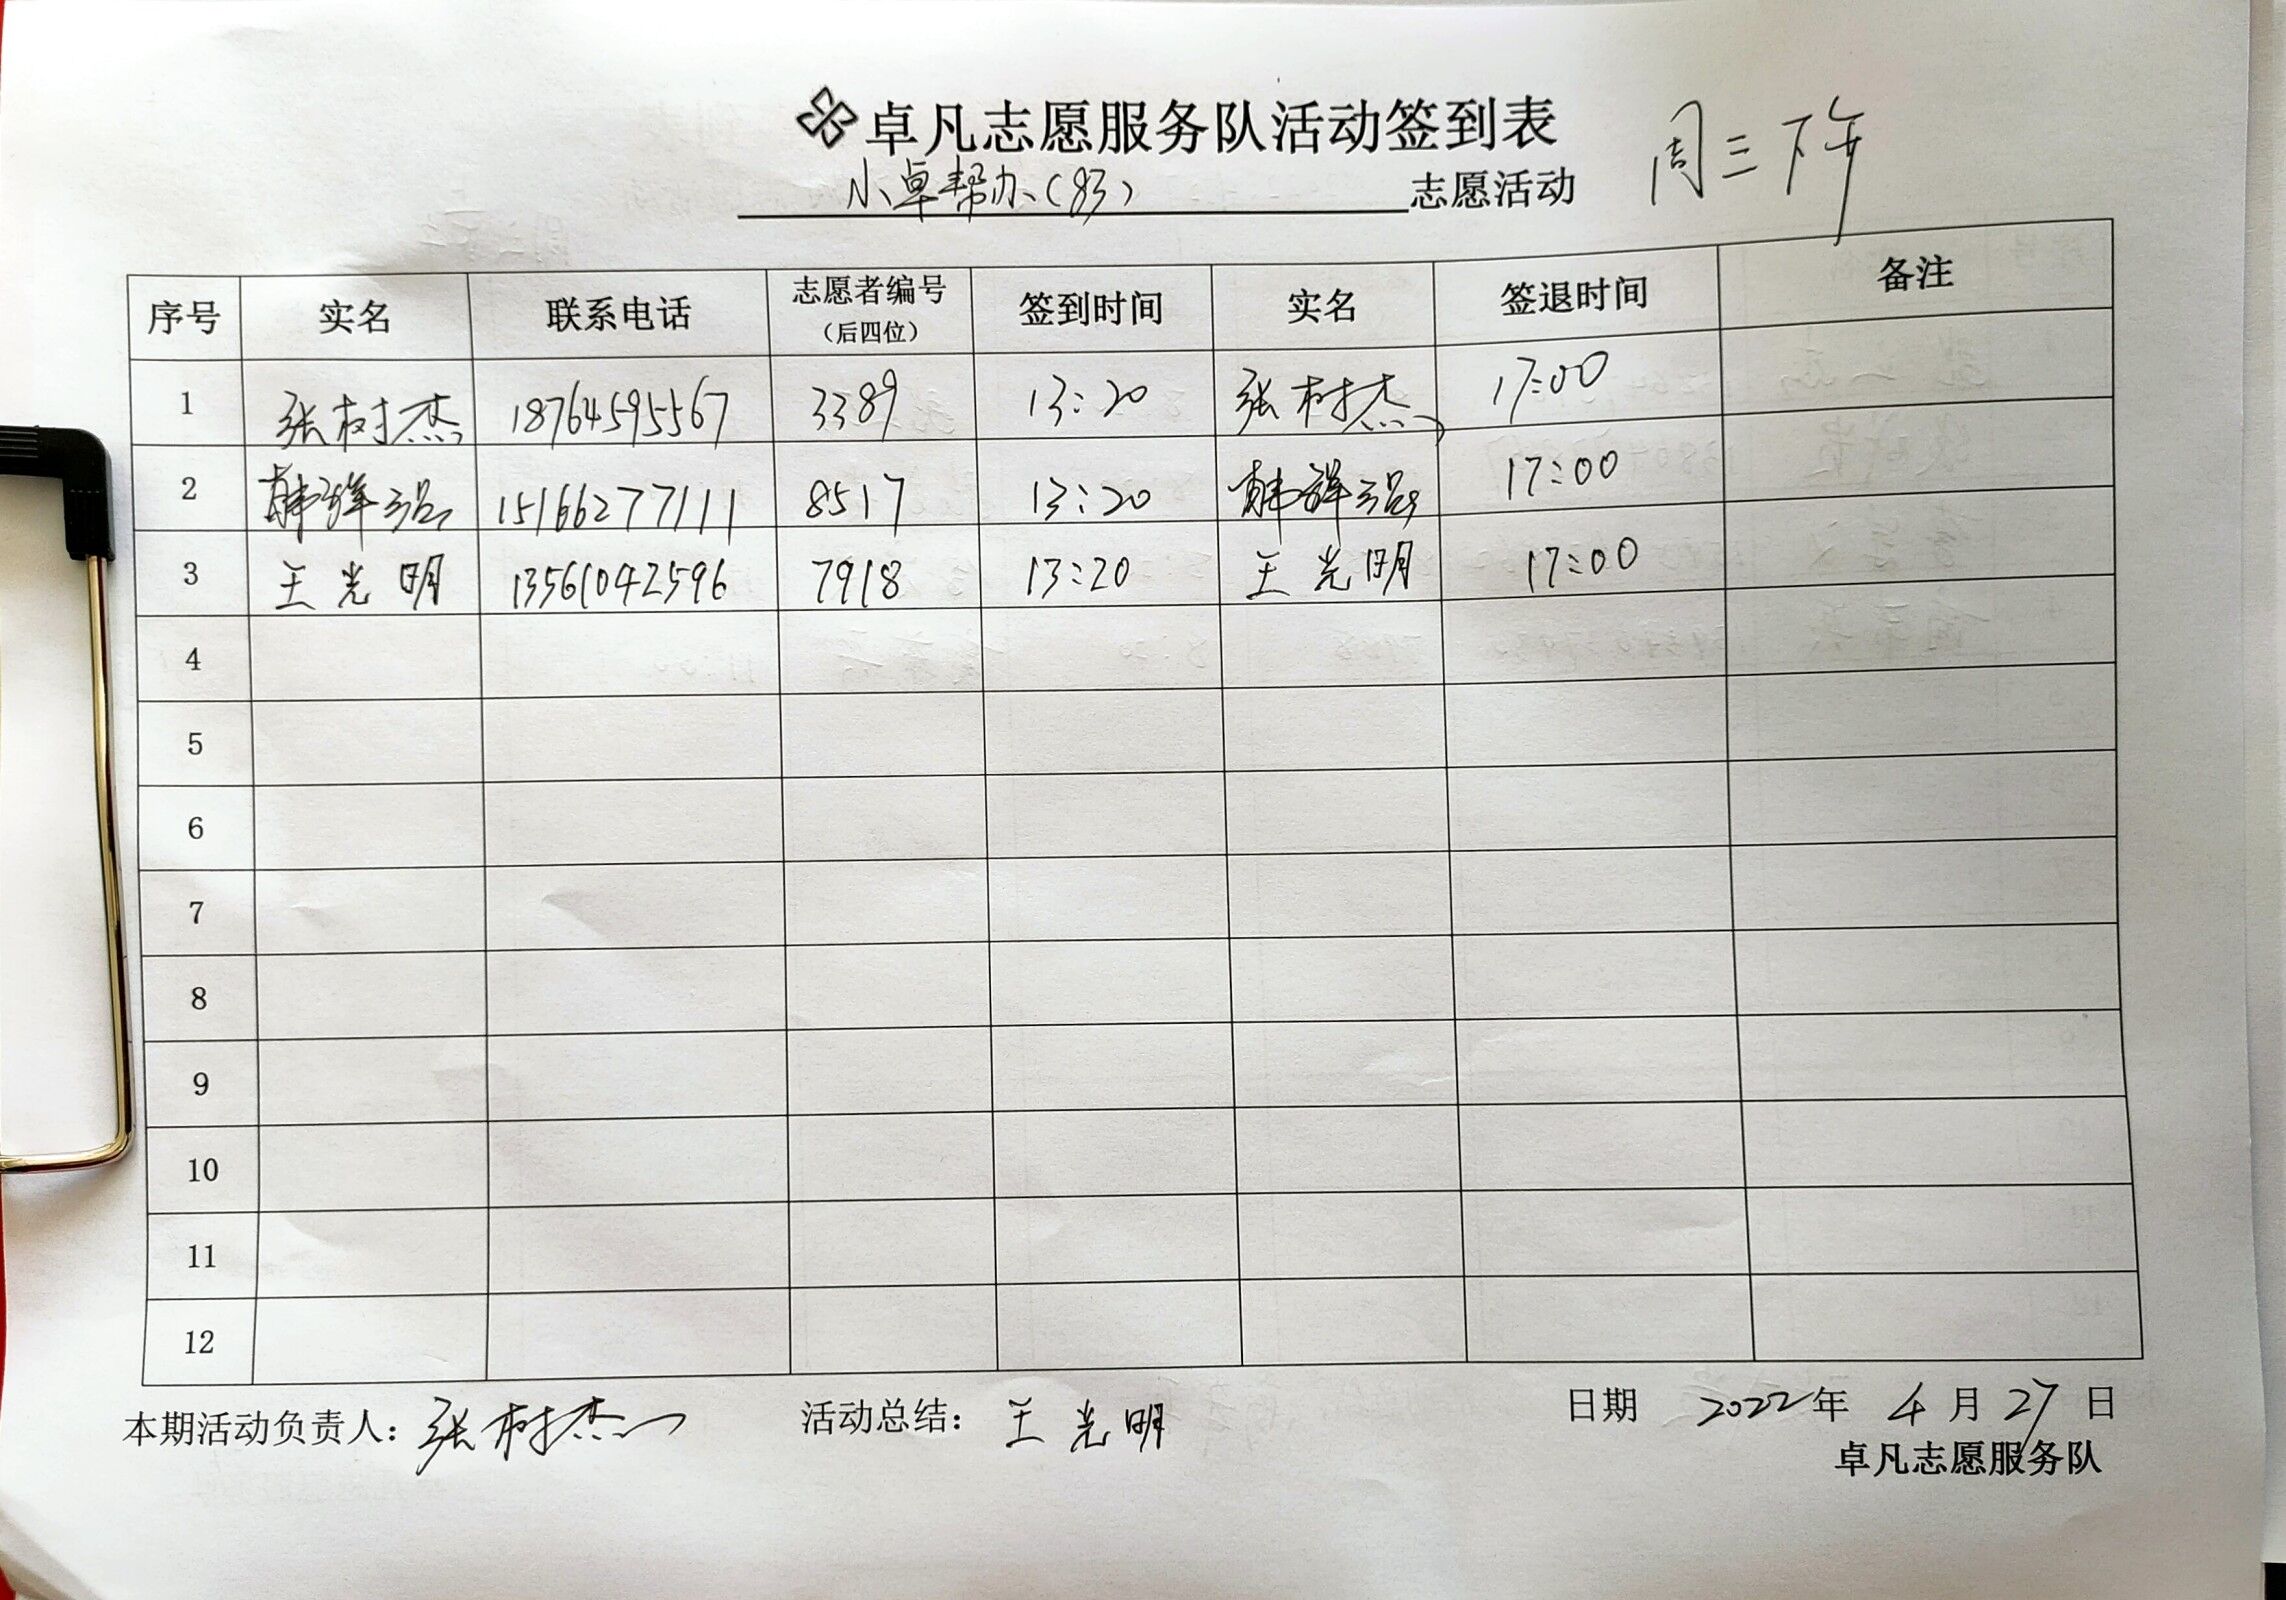 卓凡志愿服务队活动签到表
周三下午
小卓帮办(83) 志愿活动
序号 实名 联系电话 志愿者编号(后四位) 签到时间 实名 签退时间 备注
1 张树杰 18764595567 3389 13:20 张树杰 17:00
2 韩祥 15166277111 8517 13:20 韩祥 17:00
3 王光明 13561042596 7918 13:20 王光明 17:00
4
5
6
7
8
9
10
11
12
本期活动负责人: 张树杰 活动总结: 王光明 日期 2022年 4月 27日
卓凡志愿服务队